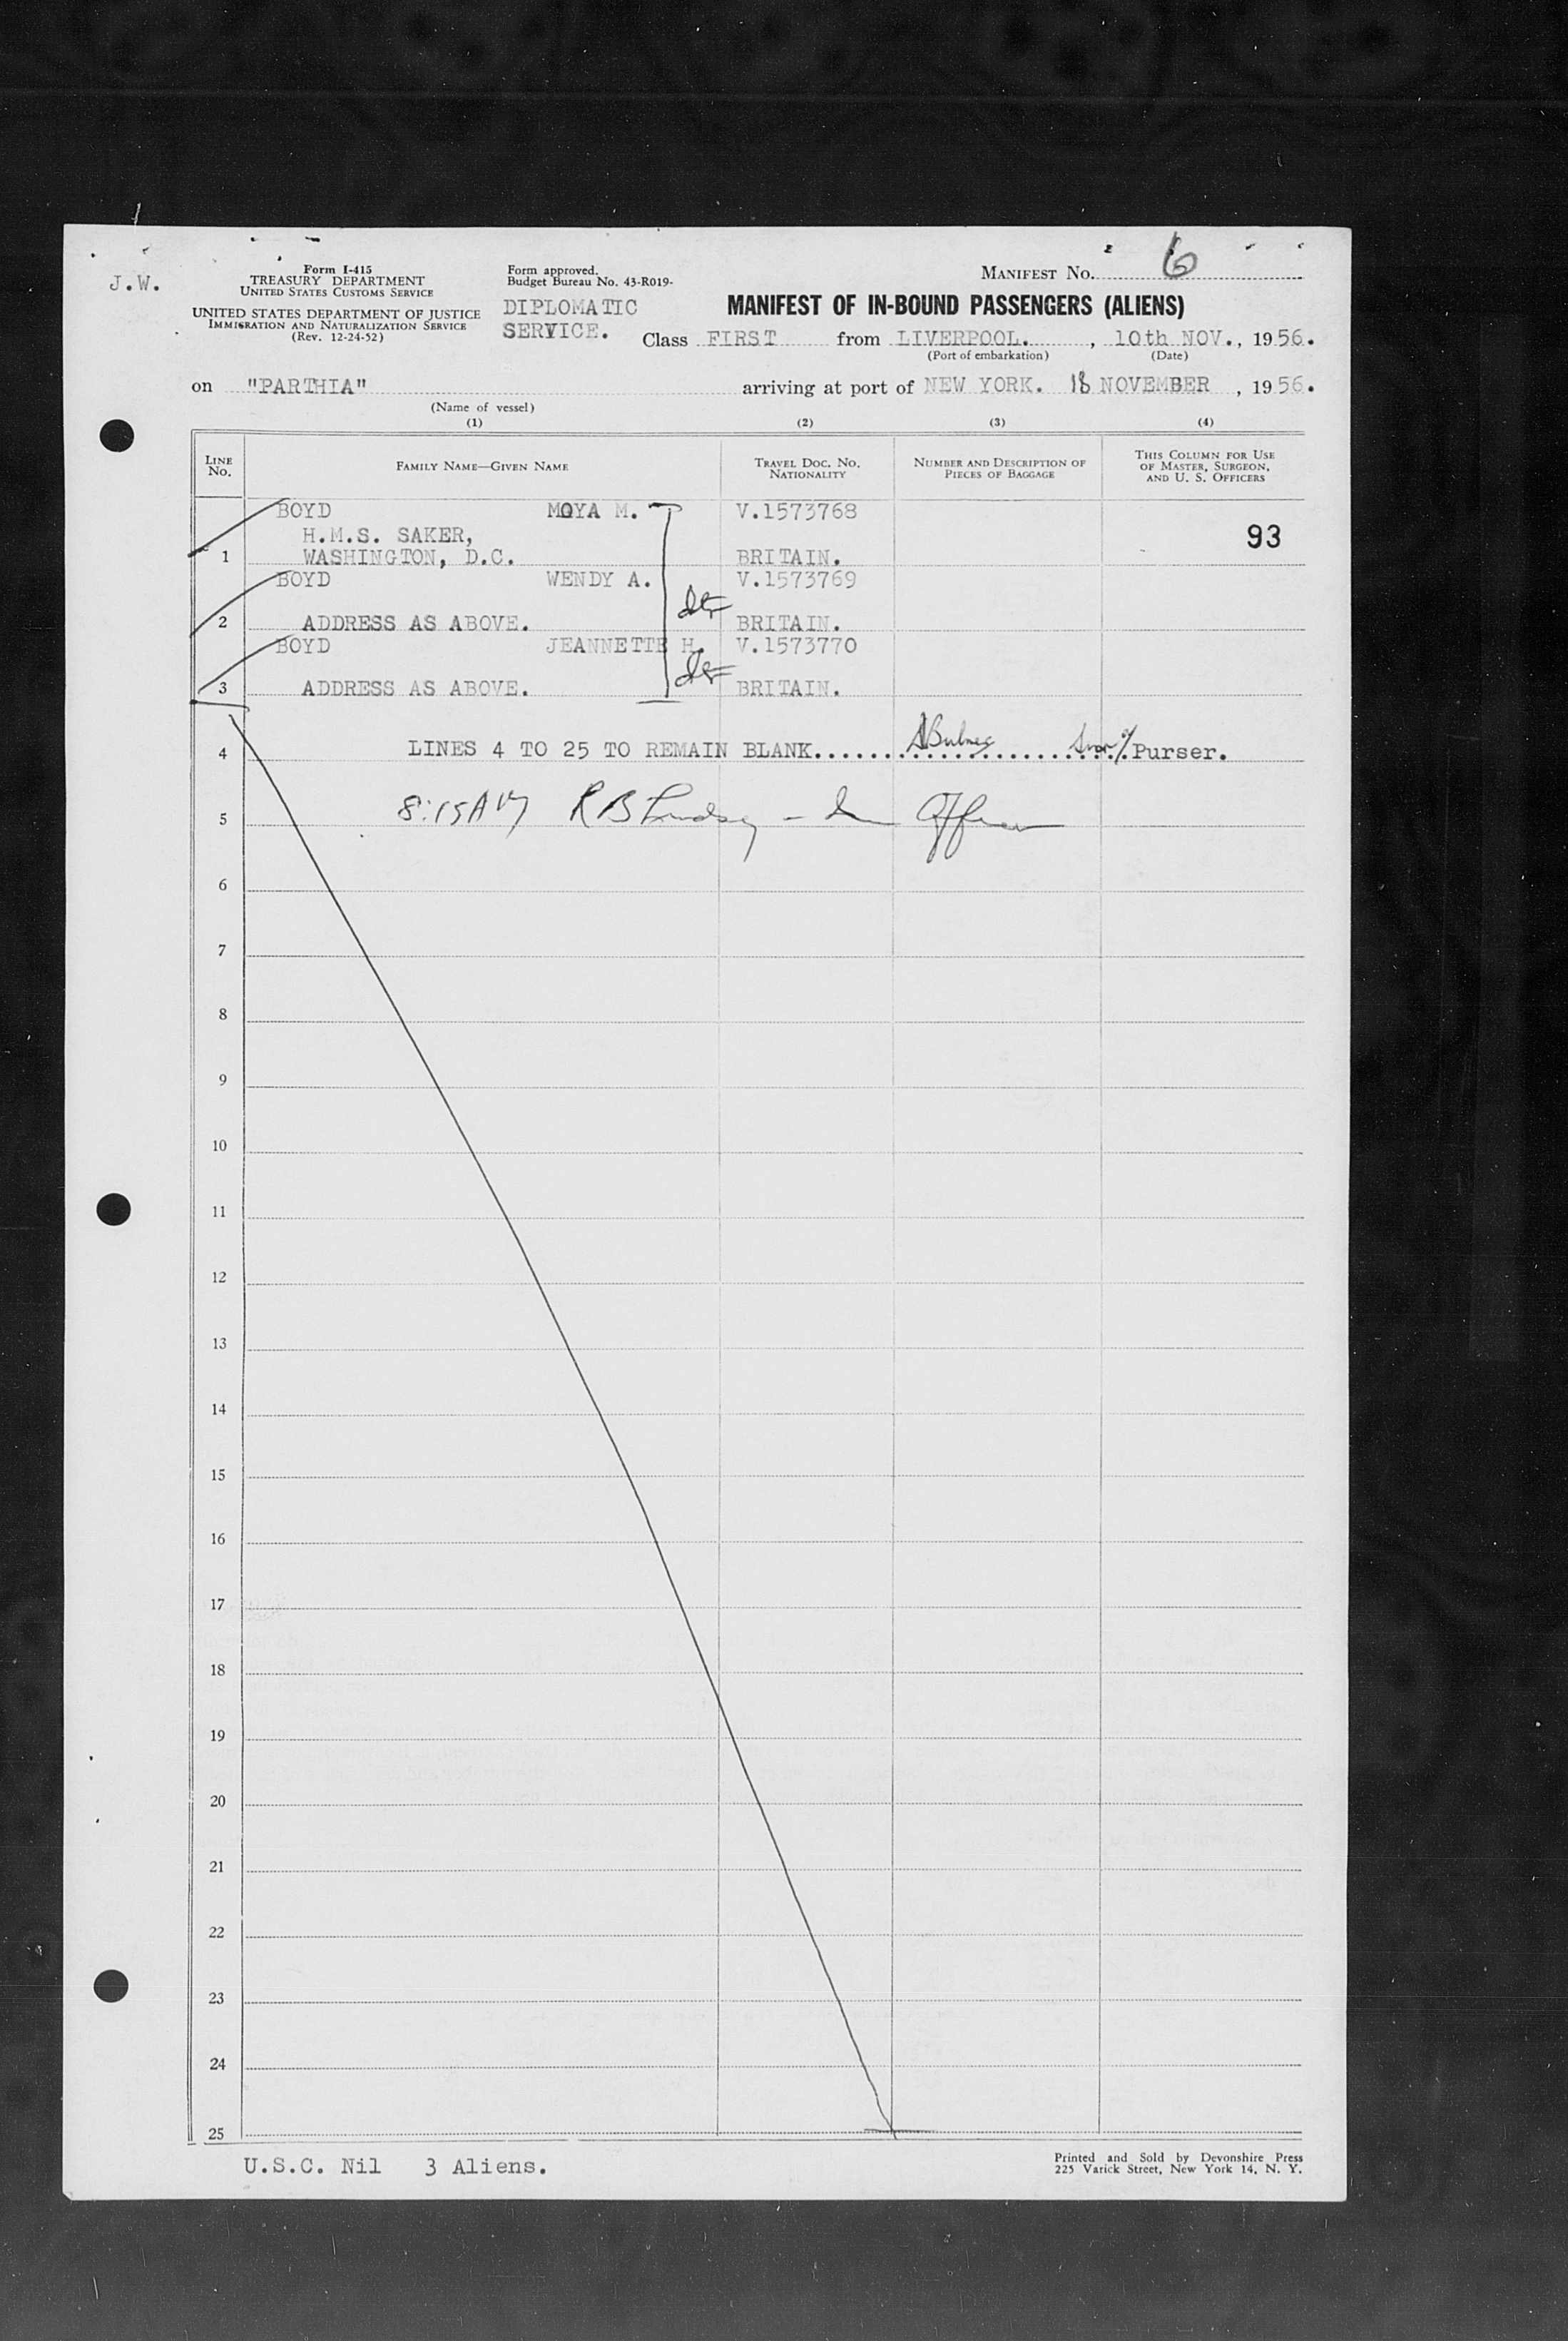 J.W.
Form I-415
TREASURY DEPARTMENT
UNITED STATES CUSTOMS SERVICE
UNITED STATES DEPARTMENT OF JUSTICE
IMMIGRATION AND NATURALIZATION SERVICE
(Rev. 12-24-52)
Form approved.
Budget Bureau No. 43-R019-
DIPLOMATIC
SERVICE.
MANIFEST No. 6
MANIFEST OF IN-BOUND PASSENGERS (ALIENS)
Class FIRST from LIVERPOOL. , 10th NOV., 1956.
(Port of embarkation) (Date)
on "PARTHIA" arriving at port of NEW YORK. 18 NOVEMBER , 1956.
(Name of vessel)
(1) (2) (3) (4)
LINE No. FAMILY NAME—GIVEN NAME TRAVEL DOC. NO. NATIONALITY NUMBER AND DESCRIPTION OF PIECES OF BAGGAGE THIS COLUMN FOR USE OF MASTER, SURGEON, AND U. S. OFFICERS
BOYD MOYA M. V.1573768
H.M.S. SAKER, 93
1 WASHINGTON, D.C. BRITAIN.
BOYD WENDY A. V.1573769
2 ADDRESS AS ABOVE. BRITAIN.
BOYD JEANNETTE H. V.1573770
3 ADDRESS AS ABOVE. BRITAIN.
4 LINES 4 TO 25 TO REMAIN BLANK....... Purser.
5 8:15AM R B Lindsay - Officer
6
7
8
9
10
11
12
13
14
15
16
17
18
19
20
21
22
23
24
25
U.S.C. Nil 3 Aliens.
Printed and Sold by Devonshire Press
225 Varick Street, New York 14, N. Y.